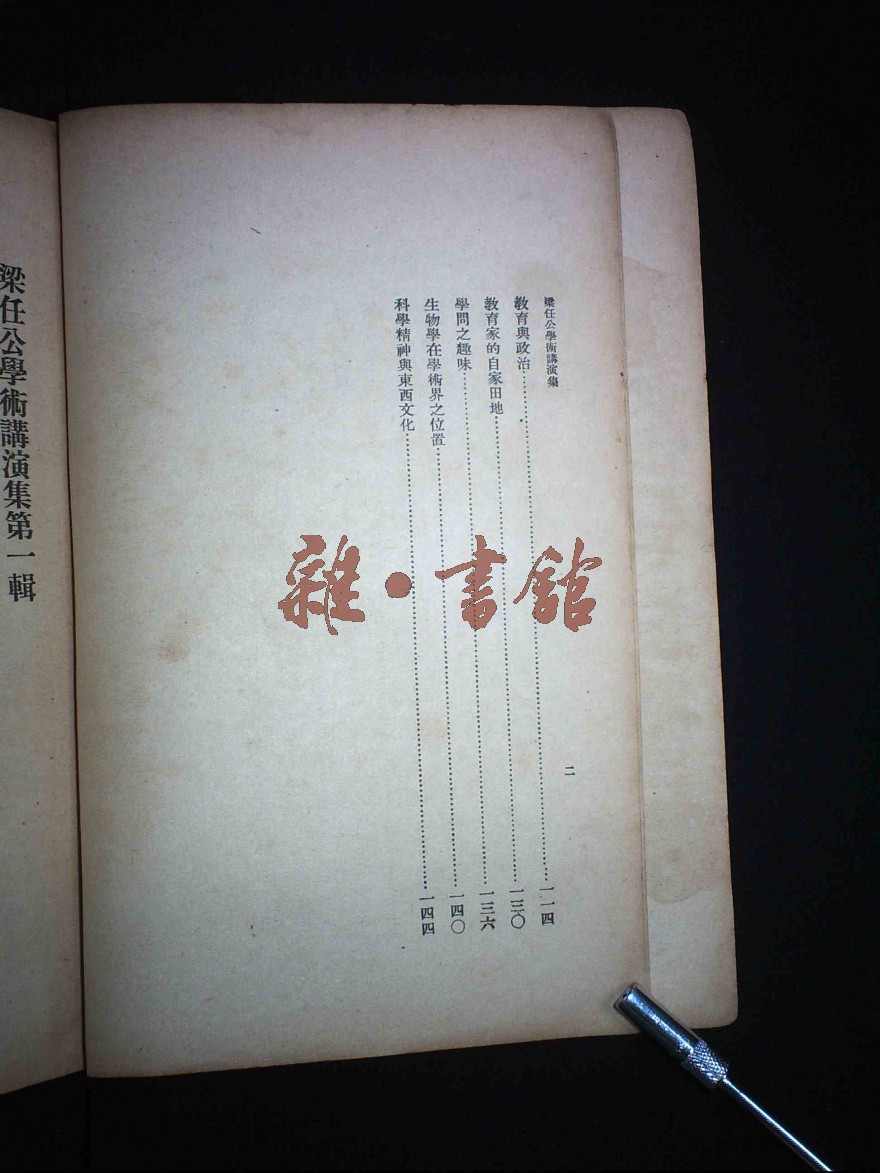 梁任公學術講演集
二
教育與政治……一一四
教育家的自家田地……一三〇
學問之趣味……一三六
生物學在學術界之位置……一四〇
科學精神與東西文化……一四四
梁任公學術講演集第一輯
雜・書館